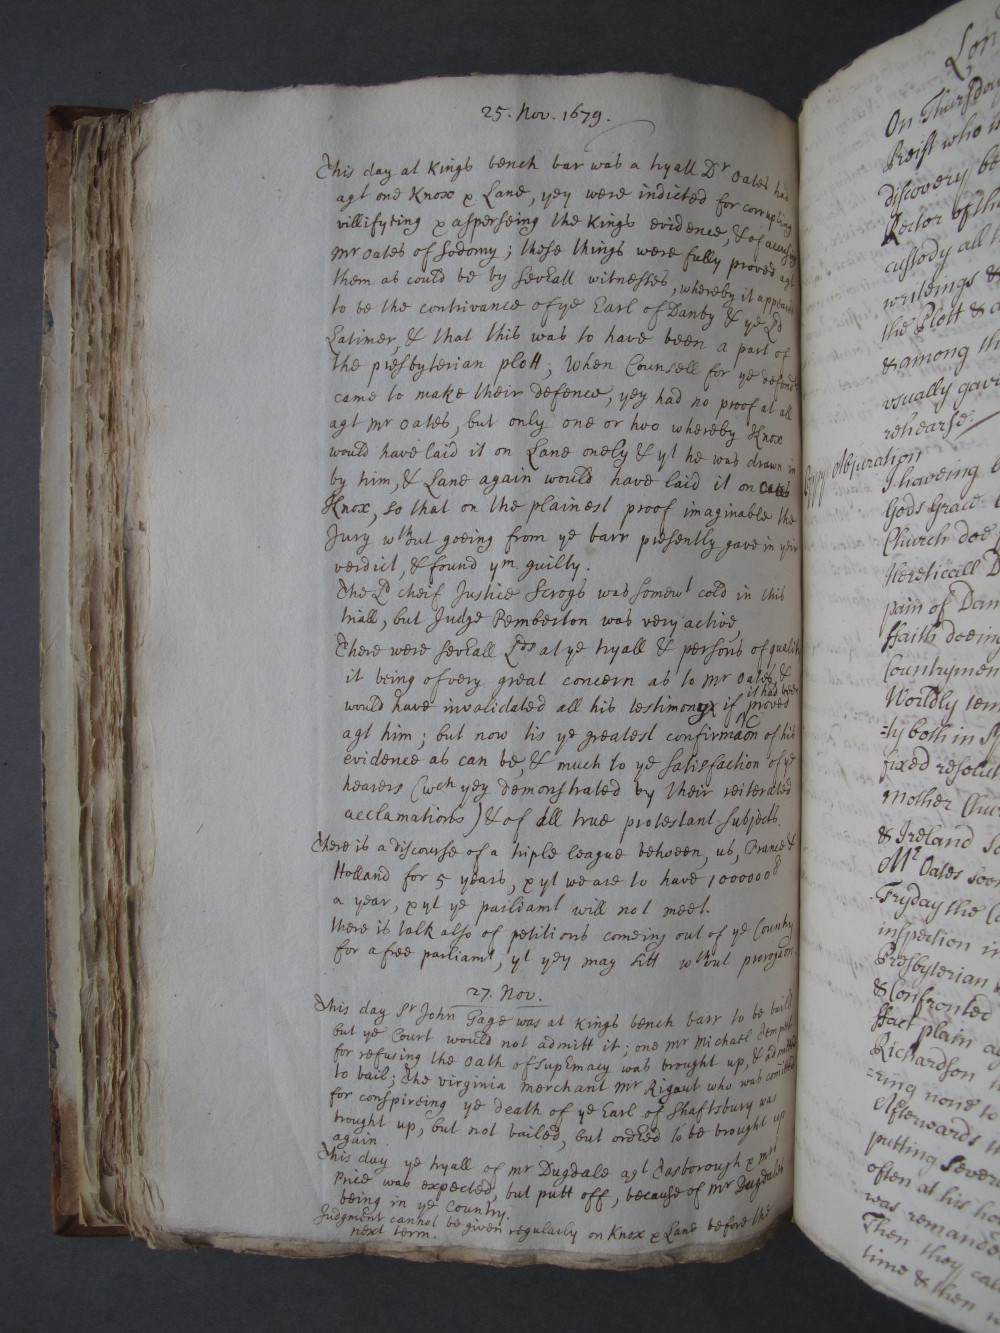 25. Nov. 1679.
This day at Kings bench bar was a tryall Dr Oates had
agt one Knox & Lane, yey were indicted for corrupting
villifyeing & asperseing the Kings evidence, & of accuseing
Mr Oates of Sodomy; those things were fully proved agt
them as could be by severall witnesses, whereby it appeared
to be the contrivance of ye Earl of Danby & ye Ld
Latimer, & that this was to have been a part of
the presbyterian plott; when Counsell for ye defendts
came to make their defence, yey had no proof at all
agt Mr Oates, but only one or two whereby Knox
would have laid it on Lane onely & yt he was drawn in
by him, & Lane again would have laid it on
Knox, so that on the plainest proof imaginable the
Jury wthout goeing from ye barr presently gave in their
verdict, & found ym guilty.
The Ld cheif Justice Scrogs was somewt cold in this
triall, but Judge Pemberton was very active
There were severall Lds at ye tryall & persons of quality
it being of very great concern as to Mr Oates, &
would have invalidated all his testimony if it had been proved
agt him; but now tis ye greatest confirmaon of his
evidence as can be, & much to ye satisfaction of ye
hearers (wch yey demonstrated by their reiterated
acclamations) & of all true protestant subjects.
There is a discourse of a triple league between, us, France &
Holland for 5 years, & yt we are to have 1000000
a year, & yt ye parliamt will not meet.
there is talk also of petitions comeing out of ye Country
for a free parliamt, yt yey may sitt wthout prorogaon
27. Nov.
This day Sr John Gage was at Kings bench barr to be baild
but ye Court would not admitt it; one Mr Michael Tempest
for refusing the oath of supremacy was brought up, & admitted
to bail; the virginia merchant Mr Rigaut who was comitted
for conspireing ye death of ye Earl of Shaftsbury was
brought up, but not bailed, but ordered to be brought up
again
This day ye tryall of Mr Dugdale agt Tasborough & Mrs
Price was expected, but putt off, because of Mr Dugdales
being in ye Country.
Judgment cannot be given regularly on Knox & Lane before the
next term.
On Thursday
Preist who
discovery
Rector of the
custody all
writeings &
the Plott &
& among
usually gave
rehearse
Copy abjuration
I haveing
Gods Grace
Church doe
Hereticall
pain of
Faith doeing
Countrymen
Worldly
ly both in
fixed
Mother Church
& Ireland
Mr Oates
Fryday the
inspection in
Presbyterian
& Confronted
fact plain
Richardson
ring none to
Afterwards
putting Severall
often at his
was remanded
Then they
time & then